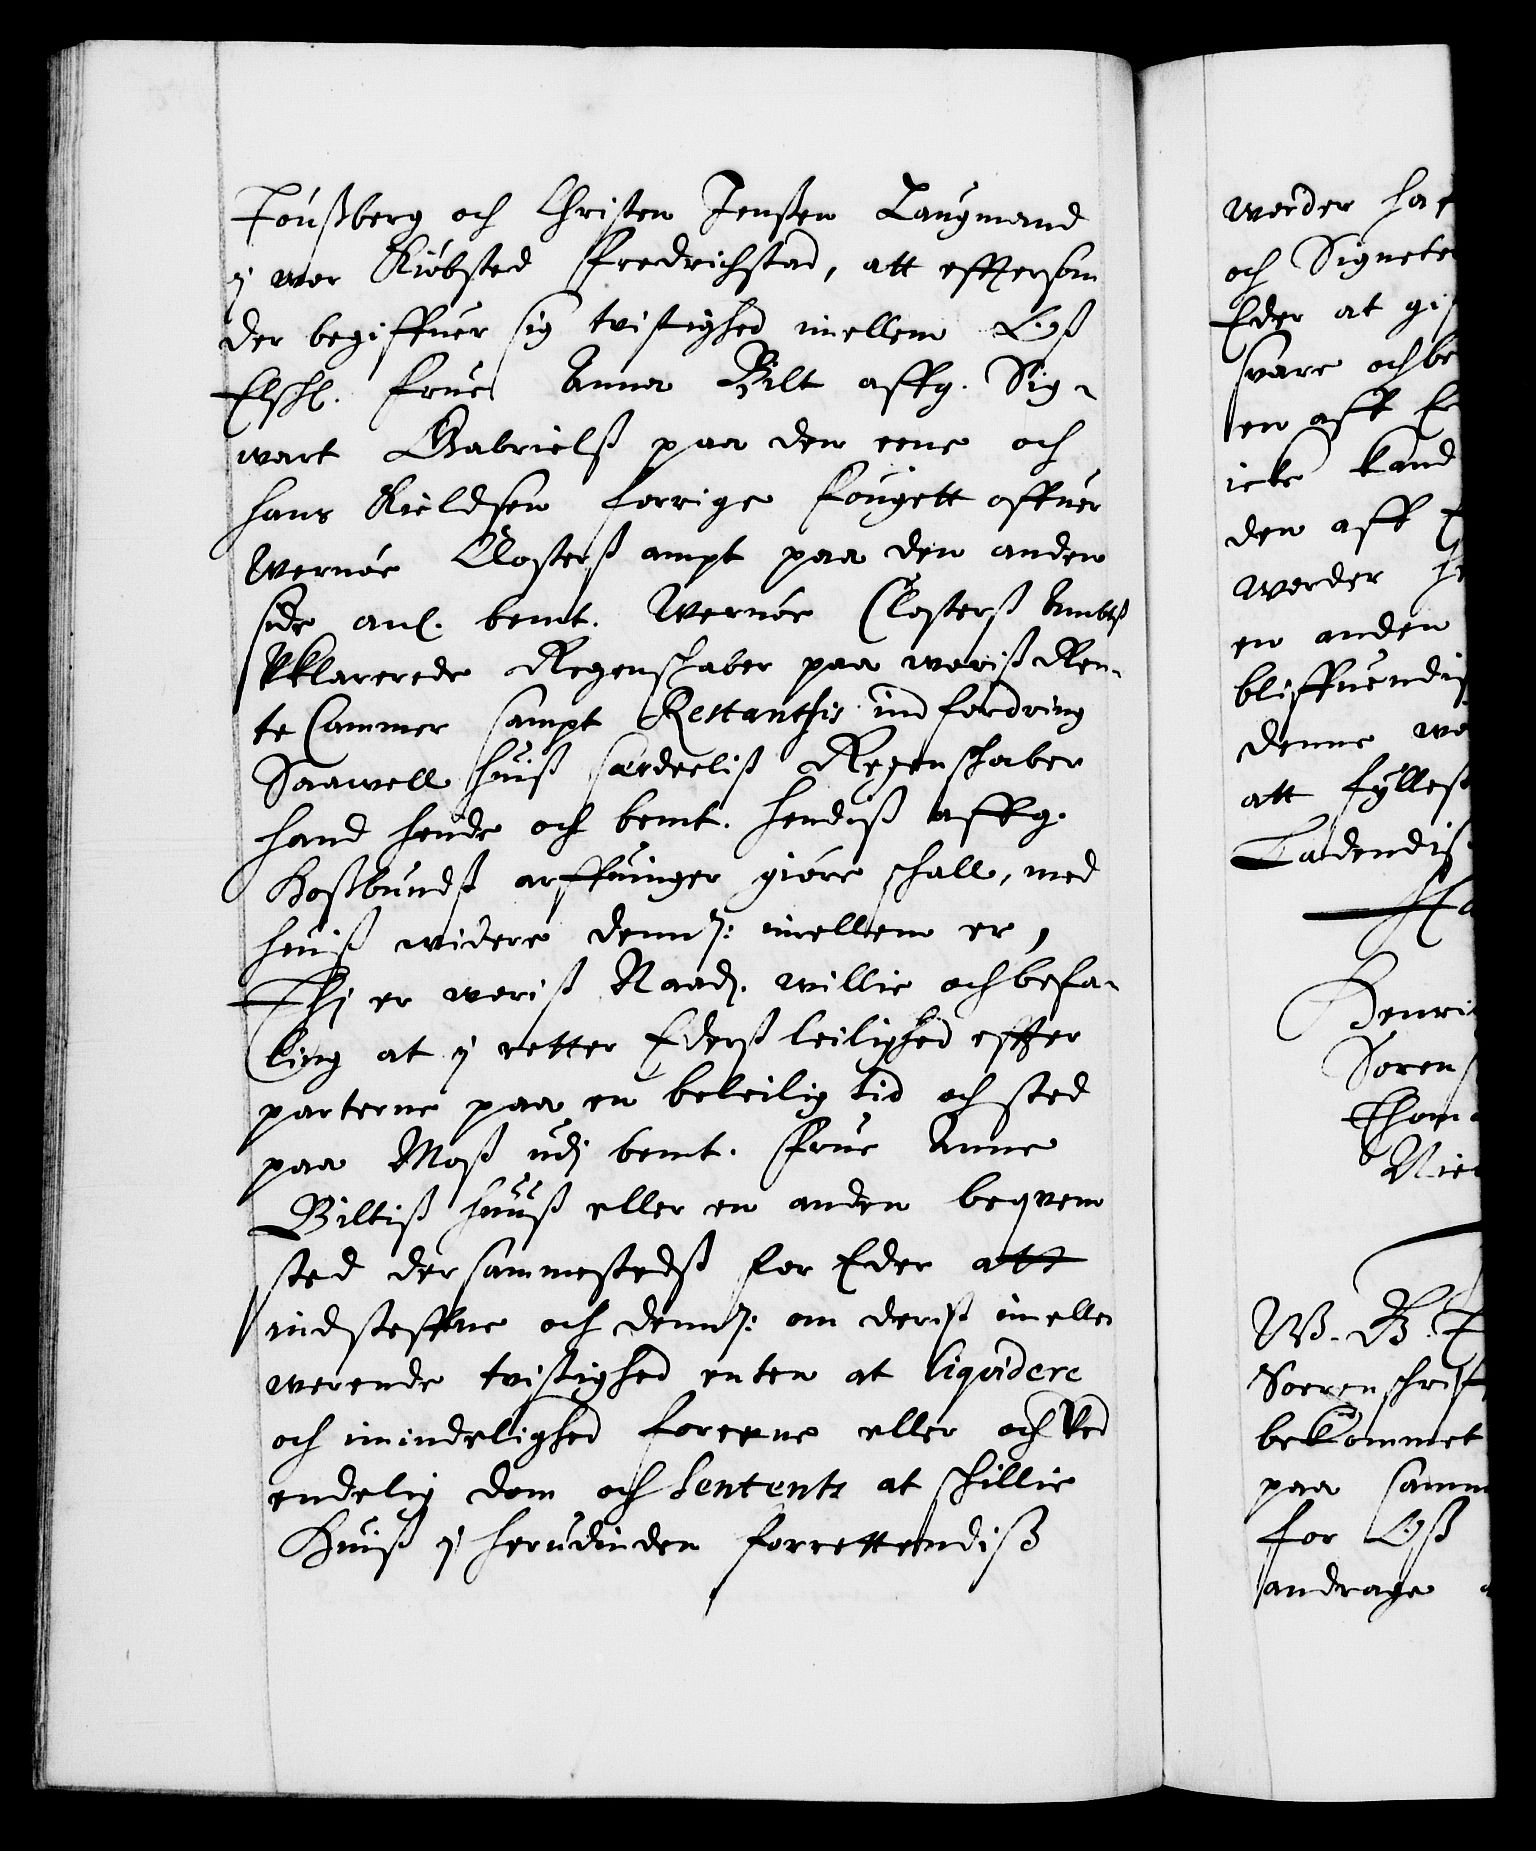 Tousberg och Christen Jenßen Laugmand
y wor Kiøbsted Fredrichstad, att effterson
der begiffuer sig tvistighed imellem Oß
Elschl. frue Anna Bilt affg. Sig-
wart Gabrielß paa den eene och
hans Kieldsen forrige fougett offuer
Wernøe Closterß ampt paa den anden
side anl. bemt. Wernøe Closterß Ambtß
Vklarerede Regenschaber paa woriß Ren-
te Cammer sampt Restanthis indfordring
Saawell huiß særdeeliß Regenschaber
hand hende och bemt. hendiß affg.
Hoßbundß arffuinger giøre schall, med
huiß widere dennom imellem er,
Thj er woriß Naad. willie och befa-
ling at y retter Ederß leilighed effter
parterne paa en beleilig tid och sted
paa Moß udj bemt. Frue Anne
Biltiß huuß eller en anden beqvem
sted dersammestedß for Eder att
indsteffne och dennom om deriß imellem
werende tvistighed enten at liqvidere
och i mindelighed foreene eller och Ved
endelig dom och Sentents at schillie
Huiß y herudinden forrettendiß
worder haf
och Signeter
Eder at gif
svare och be
en aff E
icke kand
den aff E
worder he
en anden
bliffuendiß
denne wo
att fylleß
Ladendiß
Henri
Soren
Thom
Niel
W. G. T
Soerenschrif
bekommet
paa samm
for Oß
andrage